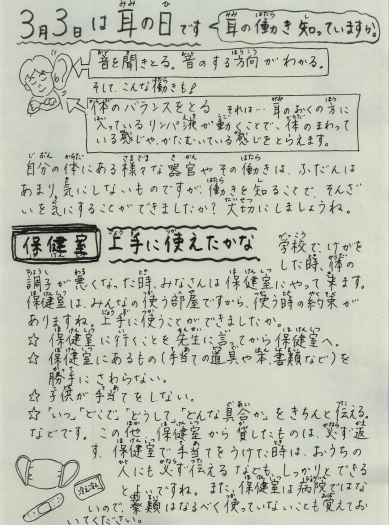 3月3日は耳の日です 耳の働き知っていますか。
音を聞きとる。音のする方向がわかる。
そして、こんな働きも!
体のバランスをとる それは…耳のおくの方に
入っているリンパ液が動くことで、体のまわって
いる感じや、かたむいている感じをとらえます。
自分の体にある様々な器官やその働きは、ふだんは
あまり気にしないものですが、働きを知ることで、そんざ
いを気にすることができましたか?大切にしましょうね。
保健室 上手に使えたかな 学校で、けがを
した時、体の
調子が悪くなった時、みなさんは保健室にやって来ます。
保健室は、みんなの使う部屋ですから、使う時の約束が
ありますね。上手に使うことができましたか。
☆ 保健室に行くことを先生に言ってから保健室へ。
☆ 保健室にあるもの(手当ての道具や本、書類など)を
勝手にさわらない。
☆ 子供が手当てをしない。
☆ “いつ。”どこで。”どうして。”どんな具合か。をきちんと伝える。
などです。この他、保健室から貸したものは、必ず返
す、保健室で手当てをうけた時は、おうちの
人にも必ず伝えるなども、しっかりとできる
とよいですね。また、保健室は病院ではな
いので、薬類はなるべく使っていないことも覚えてお
いてください。